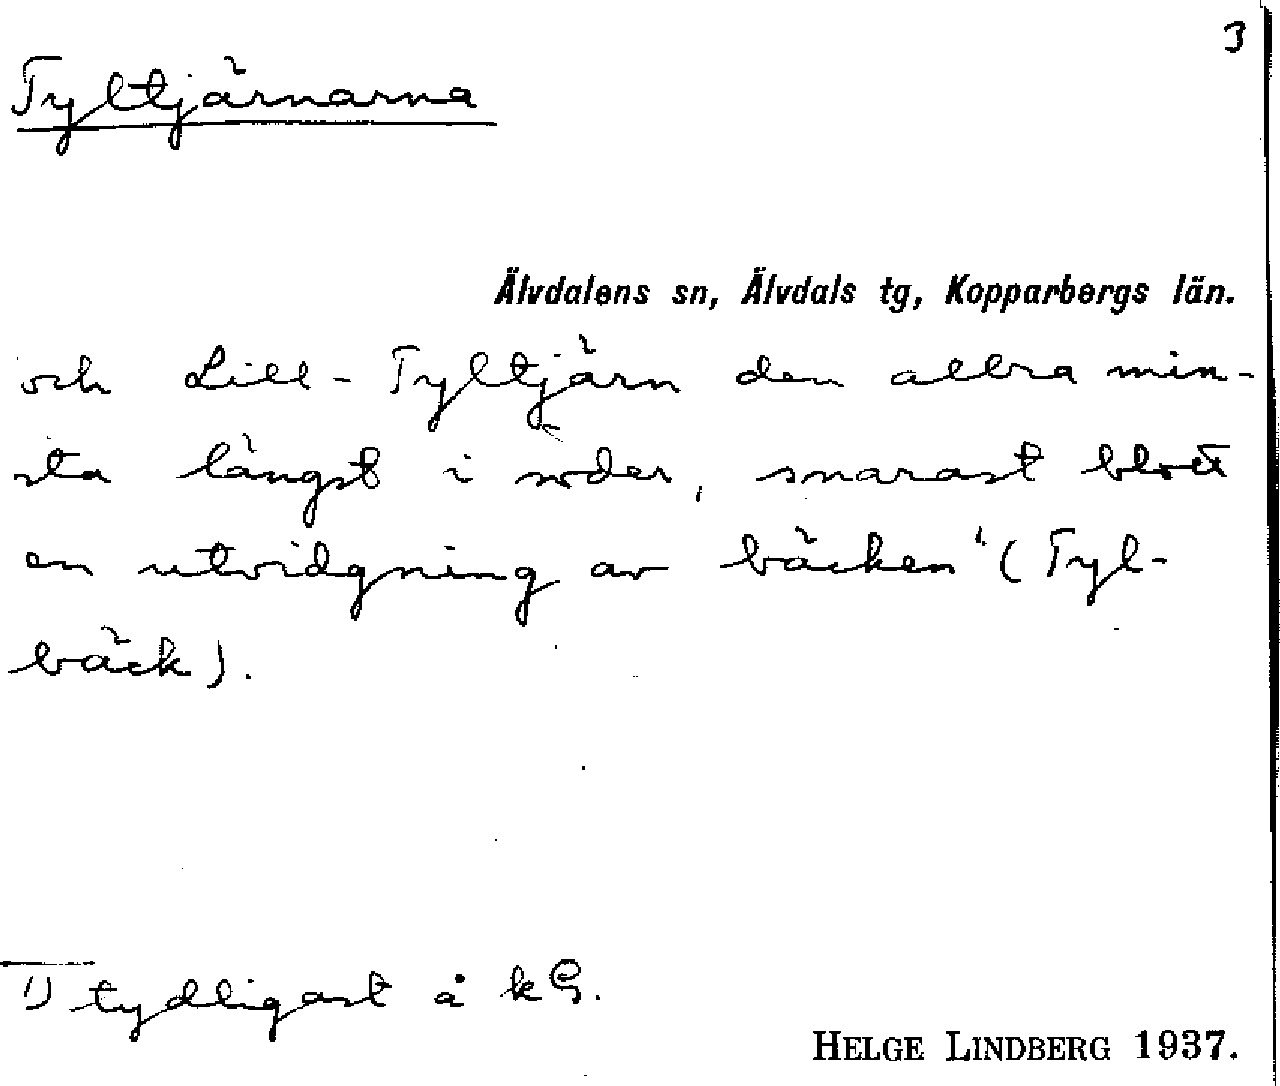 3
Tyltjärnarna
Älvdalens sn, Älvdals tg, Kopparbergs län.
och Lill-Tyltjärn den allra min-
sta längst i söder, snarast blott
en utvidgning av bäcken" (Tyl-
bäck).
1) tydligast å kG.
HELGE LINDBERG 1937.